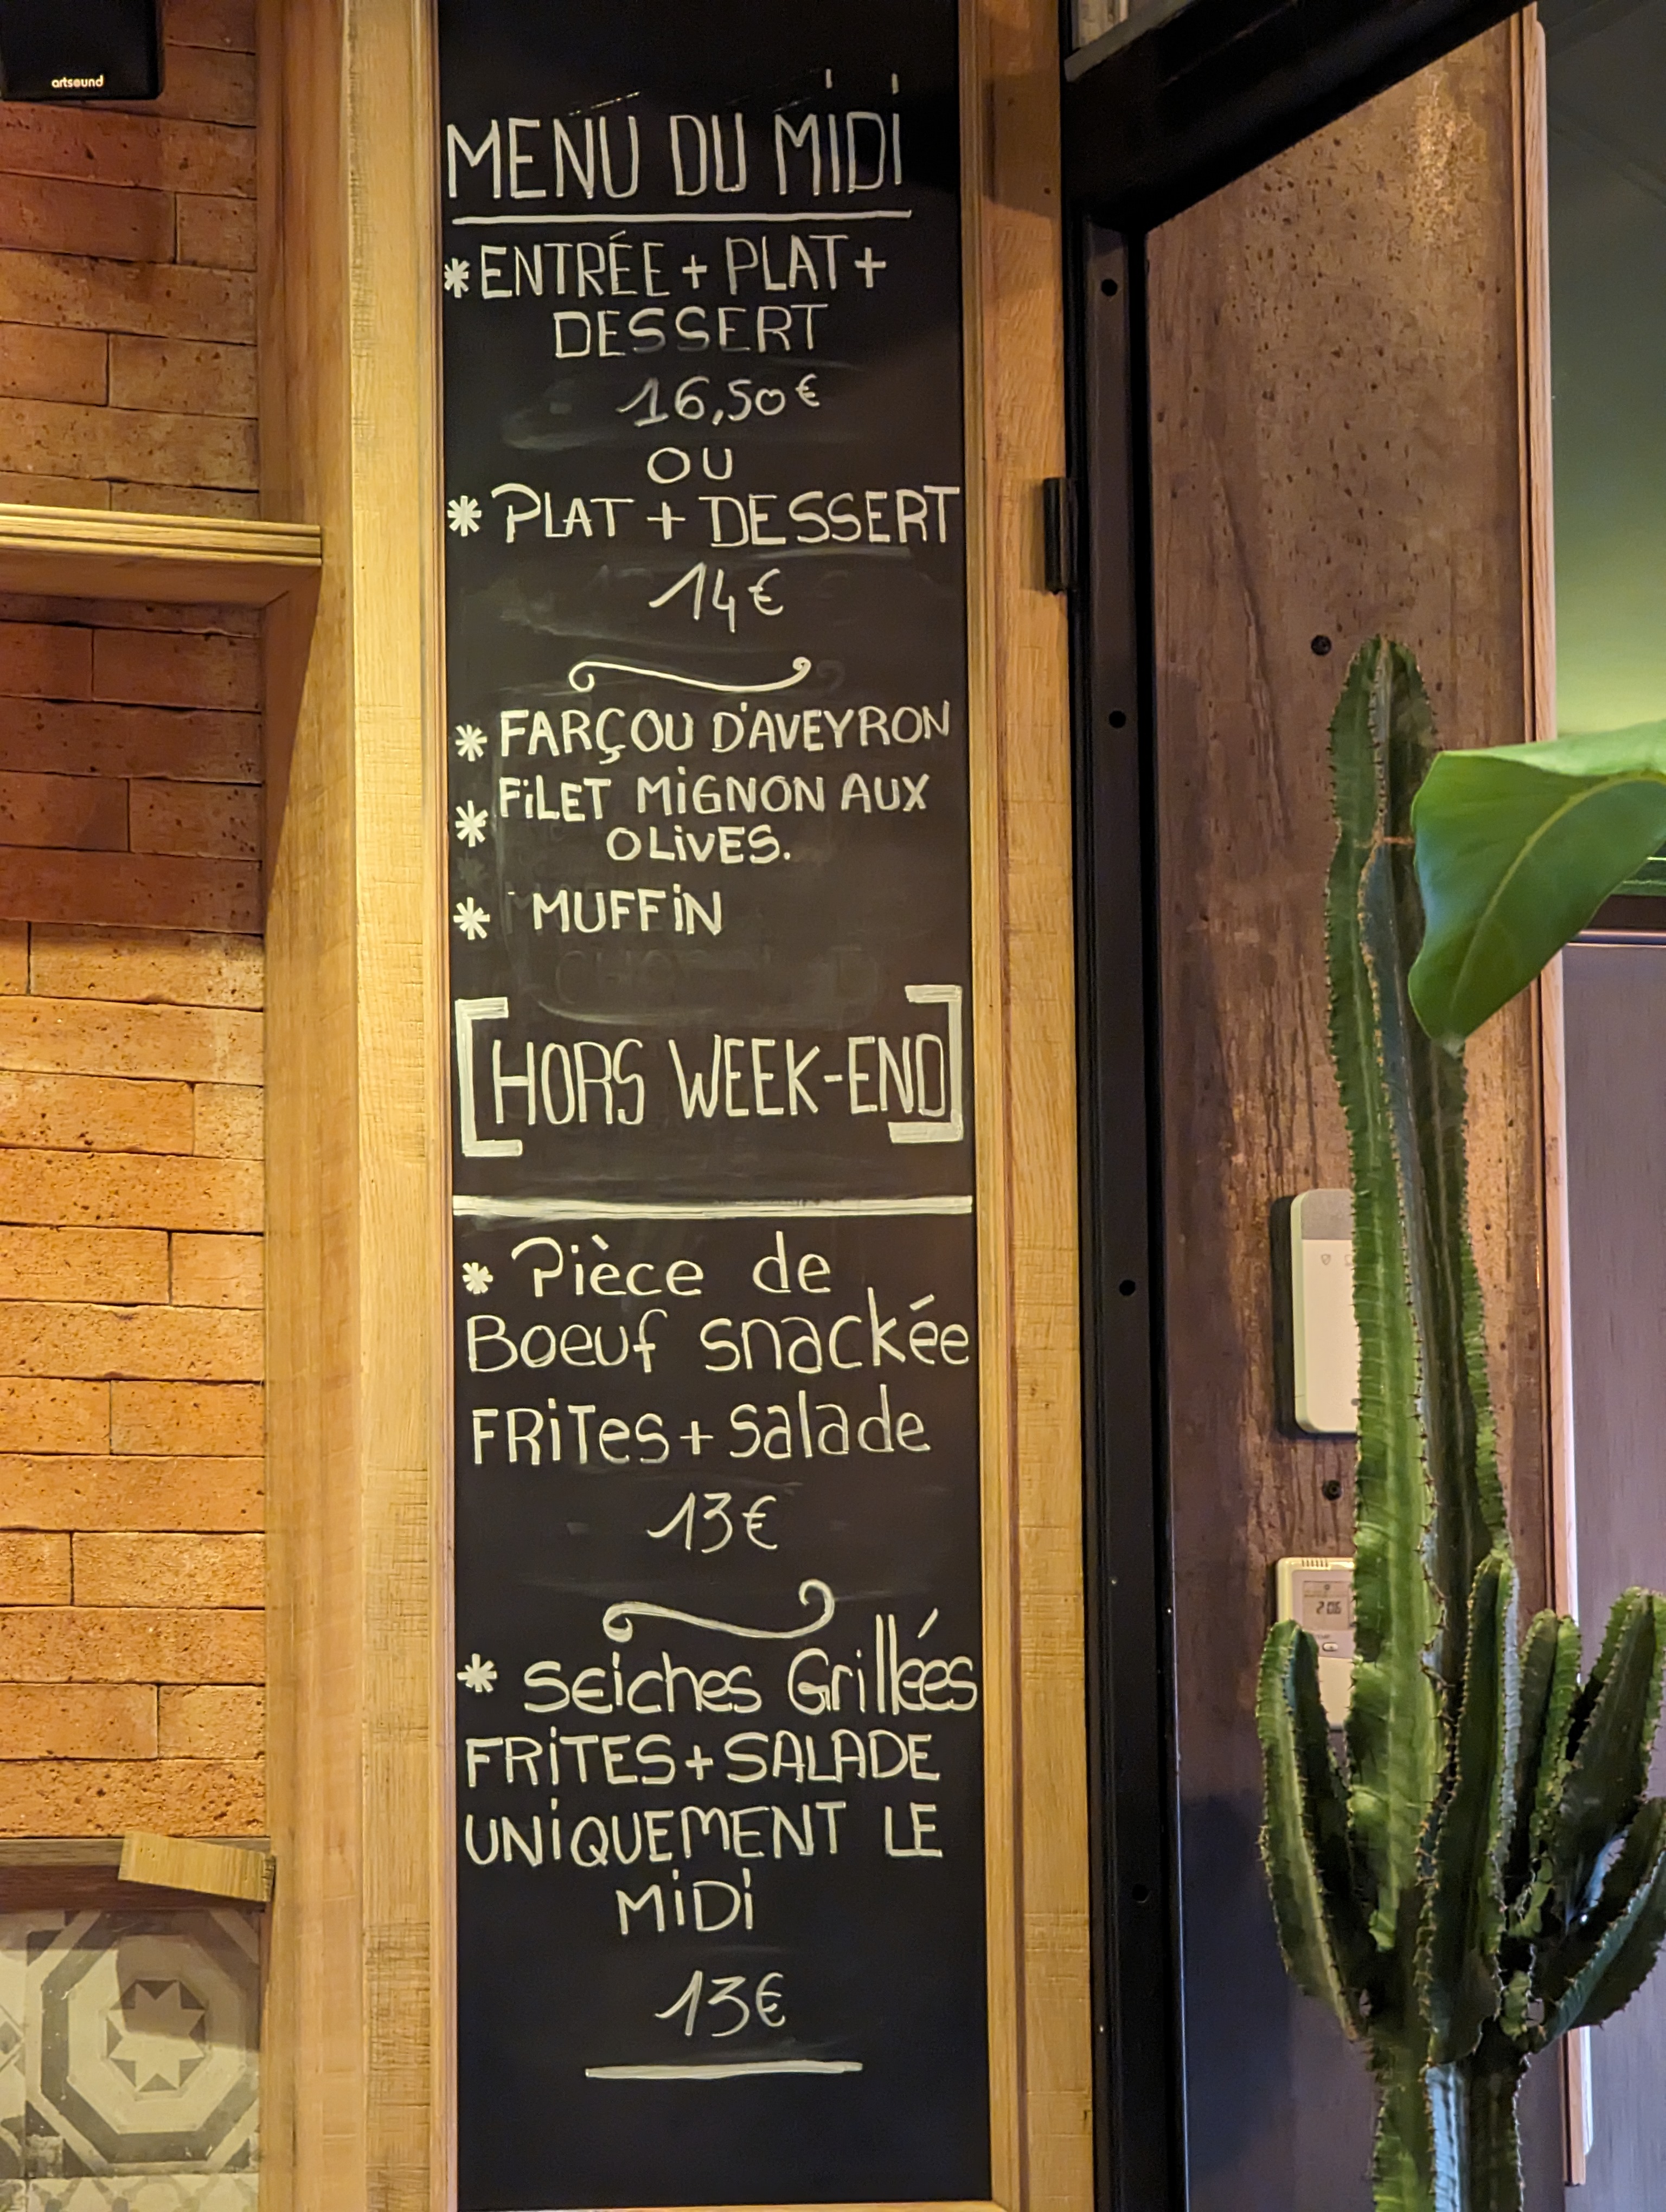 artsound
MENU DU MIDI
*ENTRÉE + PLAT +
DESSERT
16,50€
OU
* PLAT + DESSERT
14€
* FARÇOU D'AVEYRON
* FILET MIGNON AUX
OLIVES.
* MUFFIN
[HORS WEEK-END]
* Pièce de
Boeuf snackée
FRITes + salade
13€
* seiches Grillées
FRITES + SALADE
UNIQUEMENT LE
MIDI
13€